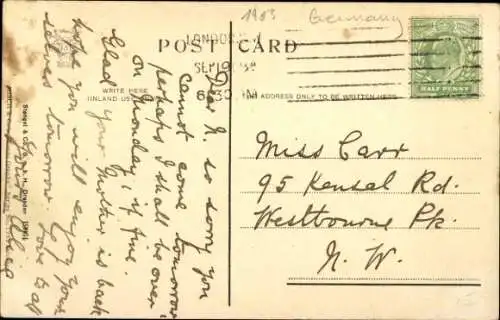 1903
Germany
LONDON
SEP 19
6.30 PM
POST CARD
HALF PENNY
WRITE HERE
(INLAND
THE ADDRESS ONLY TO BE WRITTEN HERE.
Dear N. so sorry you
cannot come tomorrow
perhaps I shall be over
on Monday, if fine.
Glad your Mother is back
hope you will enjoy your
selves tomorrow.
love to all
Miss Carr
95 Kensal Rd.
Westbourne Pk.
N. W.
Stengel & Co.
Dresden